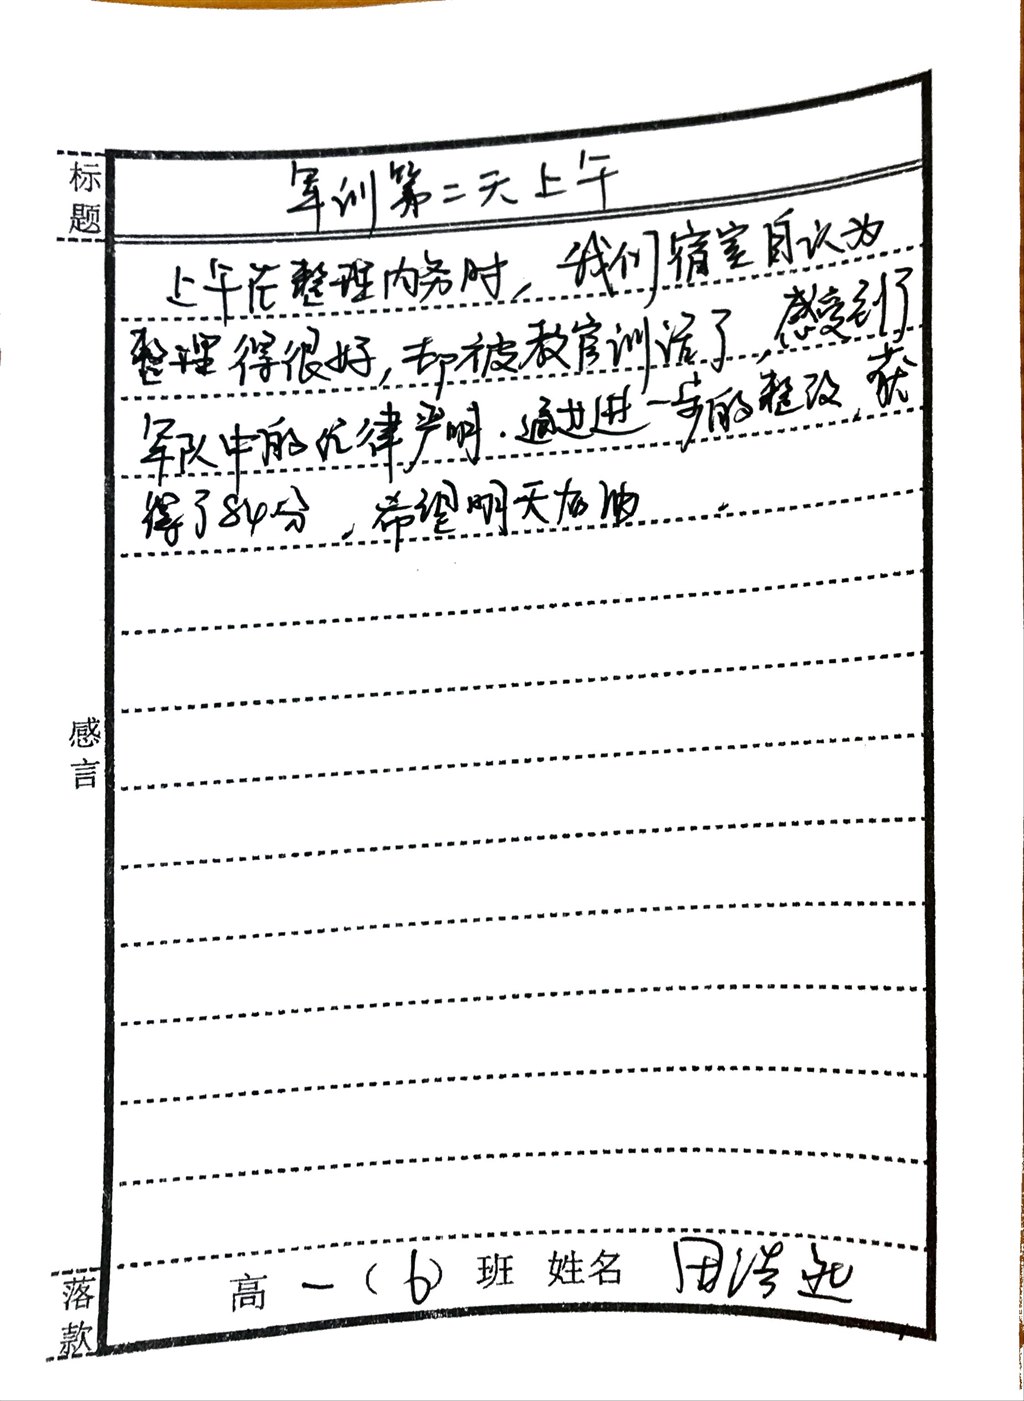 标题
军训第二天上午
上午在整理内务时,我们宿室自认为
整理得很好,却被教官训话了,感受到了
军队中的纪律严明.通过进一步的整改,获
得了84分,希望明天加油.
感言
落款
高一(6)班 姓名 田浩